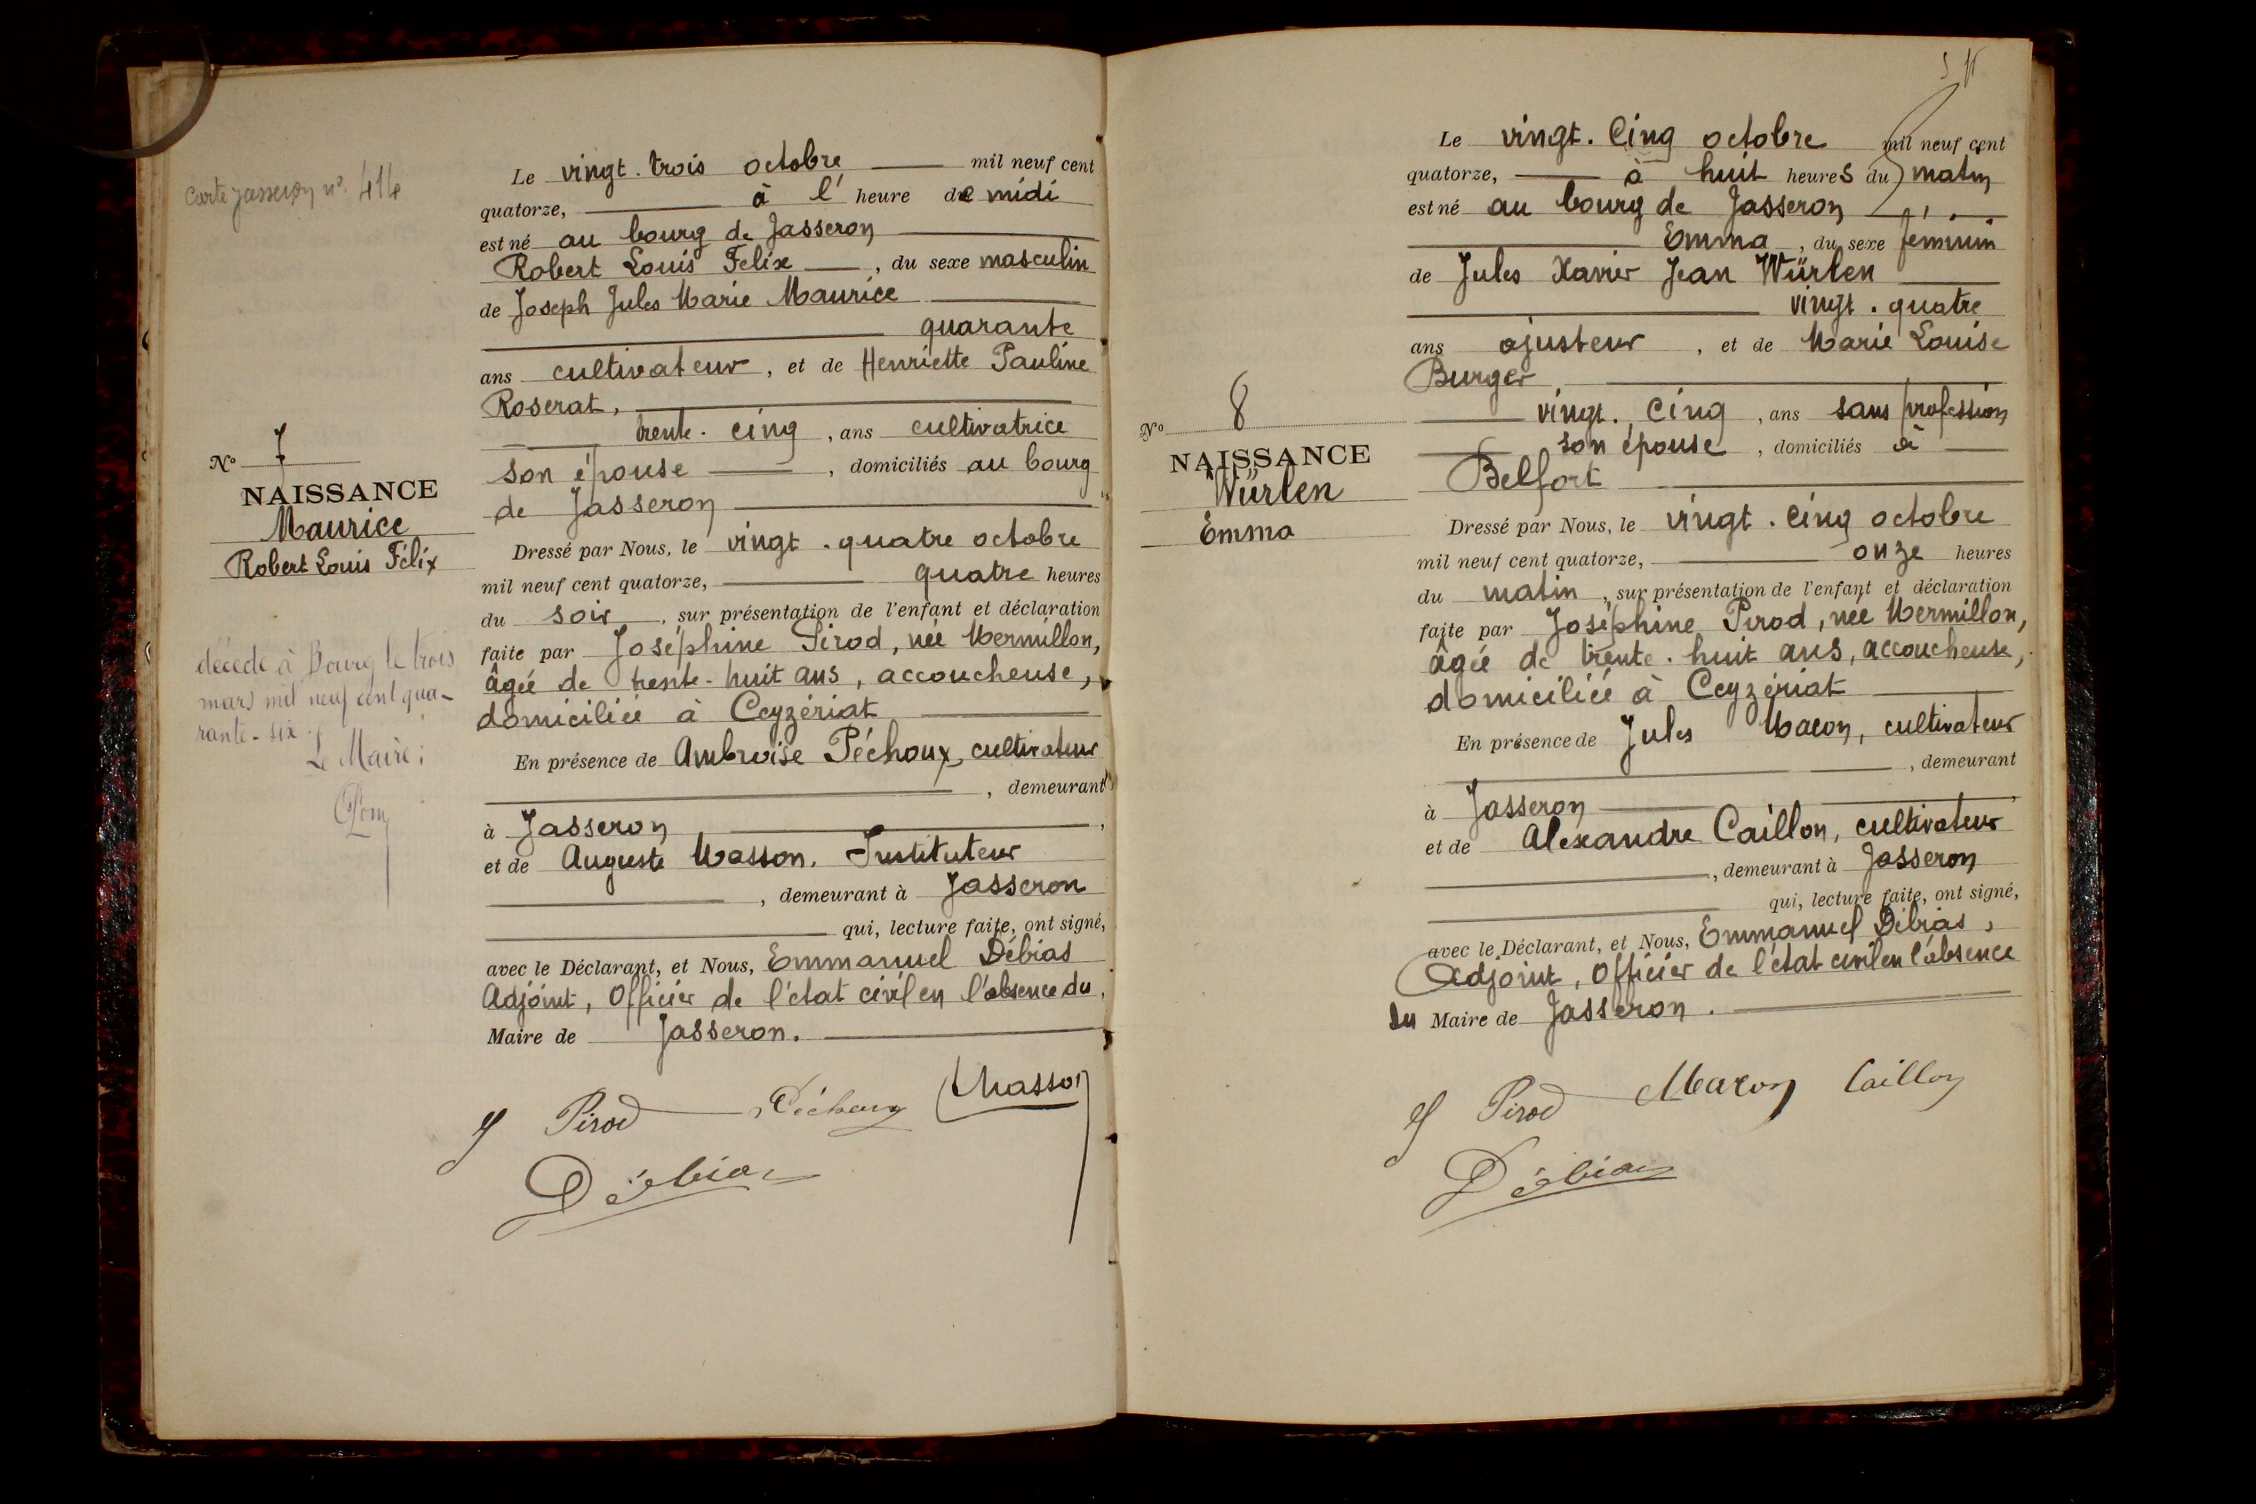 Carte Jasseron nº 414
Le vingt. trois octobre mil neuf cent
quatorze, à l' heure de midi
est né au bourg de Jasseron
Robert Louis Felix, du sexe masculin
de Joseph Jules Marie Maurice
quarante
ans cultivateur, et de Henriette Pauline
Roserat,
trente. cinq, ans cultivatrice
son épouse, domiciliés au bourg
de Jasseron
Dressé par Nous, le vingt. quatre octobre
mil neuf cent quatorze, quatre heures
du soir, sur présentation de l'enfant et déclaration
faite par Joséphine Pirod, née Mermillon,
âgée de trente-huit ans, accoucheuse,
domiciliée à Ceyzériat
En présence de Ambroise Péchoux, cultivateur
, demeurant
à Jasseron,
et de Auguste Masson. Instituteur
, demeurant à Jasseron
qui, lecture faite, ont signé,
avec le Déclarant, et Nous, Emmanuel Débias
Adjoint, Officier de l'état civil en l'absence du
Maire de Jasseron.
J Pirod Péchoux Masson
Débias
Nº 7
NAISSANCE
Maurice
Robert Louis Félix
décédé à Bourg le trois
mars mil neuf cent qua-
rante-six.
Le Maire:
Le vingt. Cinq octobre mil neuf cent
quatorze, à huit heures du matin
est né au bourg de Jasseron
Emma, du sexe féminin
de Jules Xavier Jean Würlen
vingt. quatre
ans ajusteur, et de Marie Louise
Burger,
vingt. Cinq, ans sans profession
son épouse, domiciliés à
Belfort
Dressé par Nous, le vingt. Cinq octobre
mil neuf cent quatorze, onze heures
du matin, sur présentation de l'enfant et déclaration
faite par Joséphine Pirod, née Mermillon,
âgée de trente. huit ans, accoucheuse,
domiciliée à Ceyzériat
En présence de Jules Macon, cultivateur
, demeurant
à Jasseron
et de Alexandre Caillon, cultivateur
, demeurant à Jasseron
qui, lecture faite, ont signé,
avec le Déclarant, et Nous, Emmanuel Débias,
Adjoint, Officier de l'état civil en l'absence
du Maire de Jasseron.
J Pirod Macon Caillon
Débias
Nº 8
NAISSANCE
Würlen
Emma